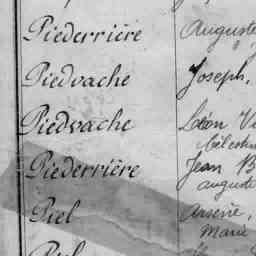 Piederrière Auguste
Piedvache Joseph,
Piedvache Léon
Célestin
Piederrière Jean B
auguste
Piel Arsène,
Marie
Piel